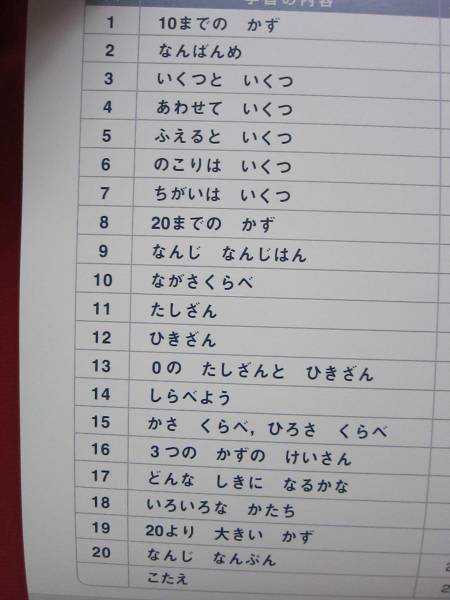 学習の内容
1 10までの かず
2 なんばんめ
3 いくつと いくつ
4 あわせて いくつ
5 ふえると いくつ
6 のこりは いくつ
7 ちがいは いくつ
8 20までの かず
9 なんじ なんじはん
10 ながさくらべ
11 たしざん
12 ひきざん
13 0の たしざんと ひきざん
14 しらべよう
15 かさ くらべ,ひろさ くらべ
16 3つの かずの けいさん
17 どんな しきに なるかな
18 いろいろな かたち
19 20より 大きい かず
20 なんじ なんぷん
こたえ